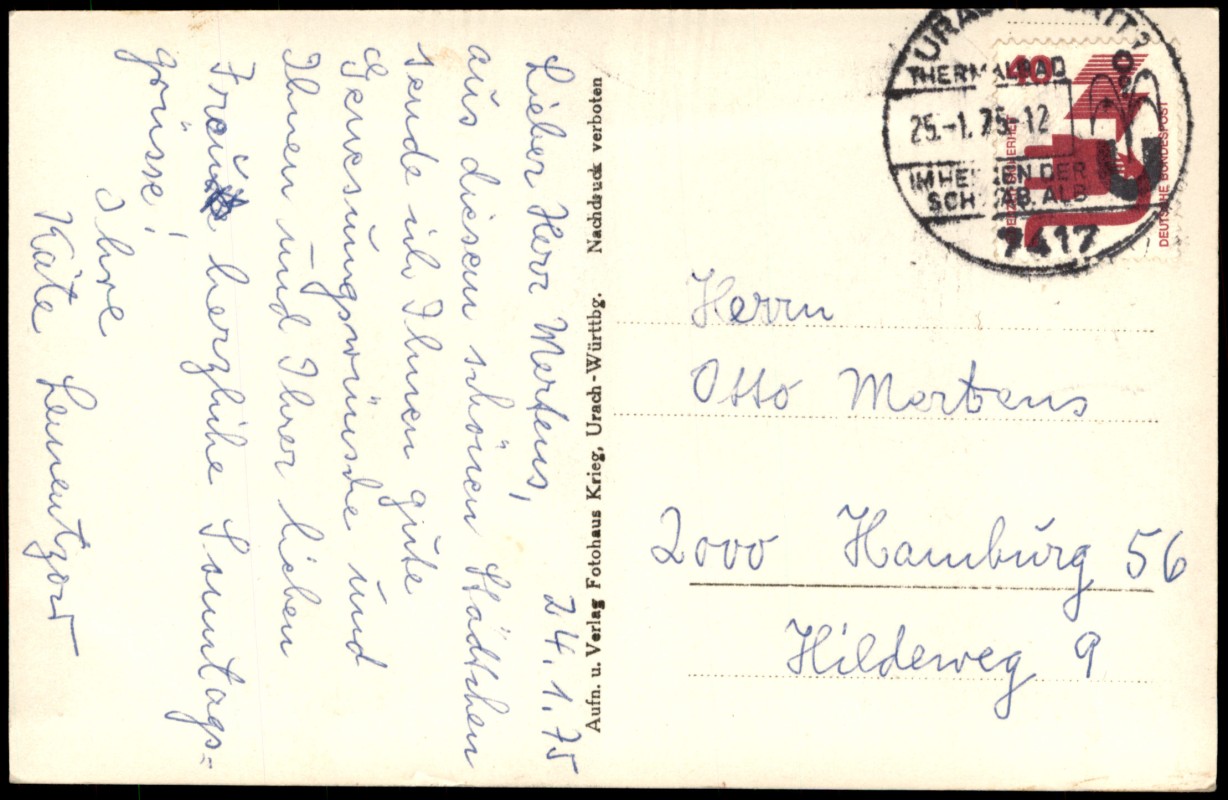 Lieber Herr Mertens, 24.1.75
aus diesem schönen Städtchen
sende ich Ihnen gute
Genesungswünsche und
Ihnen und Ihrer lieben
Frau herzliche Sonntags=
grüsse!
Ihre
Käte
Aufn. u. Verlag Fotohaus Krieg, Urach-Württbg. Nachdruck verboten
URACH
THERMALBAD
25.-1.75-12
IM HERZEN DER
SCHWÄB. ALB
7417
40
DEUTSCHE BUNDESPOST
Herrn
Otto Mertens
2000 Hamburg 56
Hildeweg 9